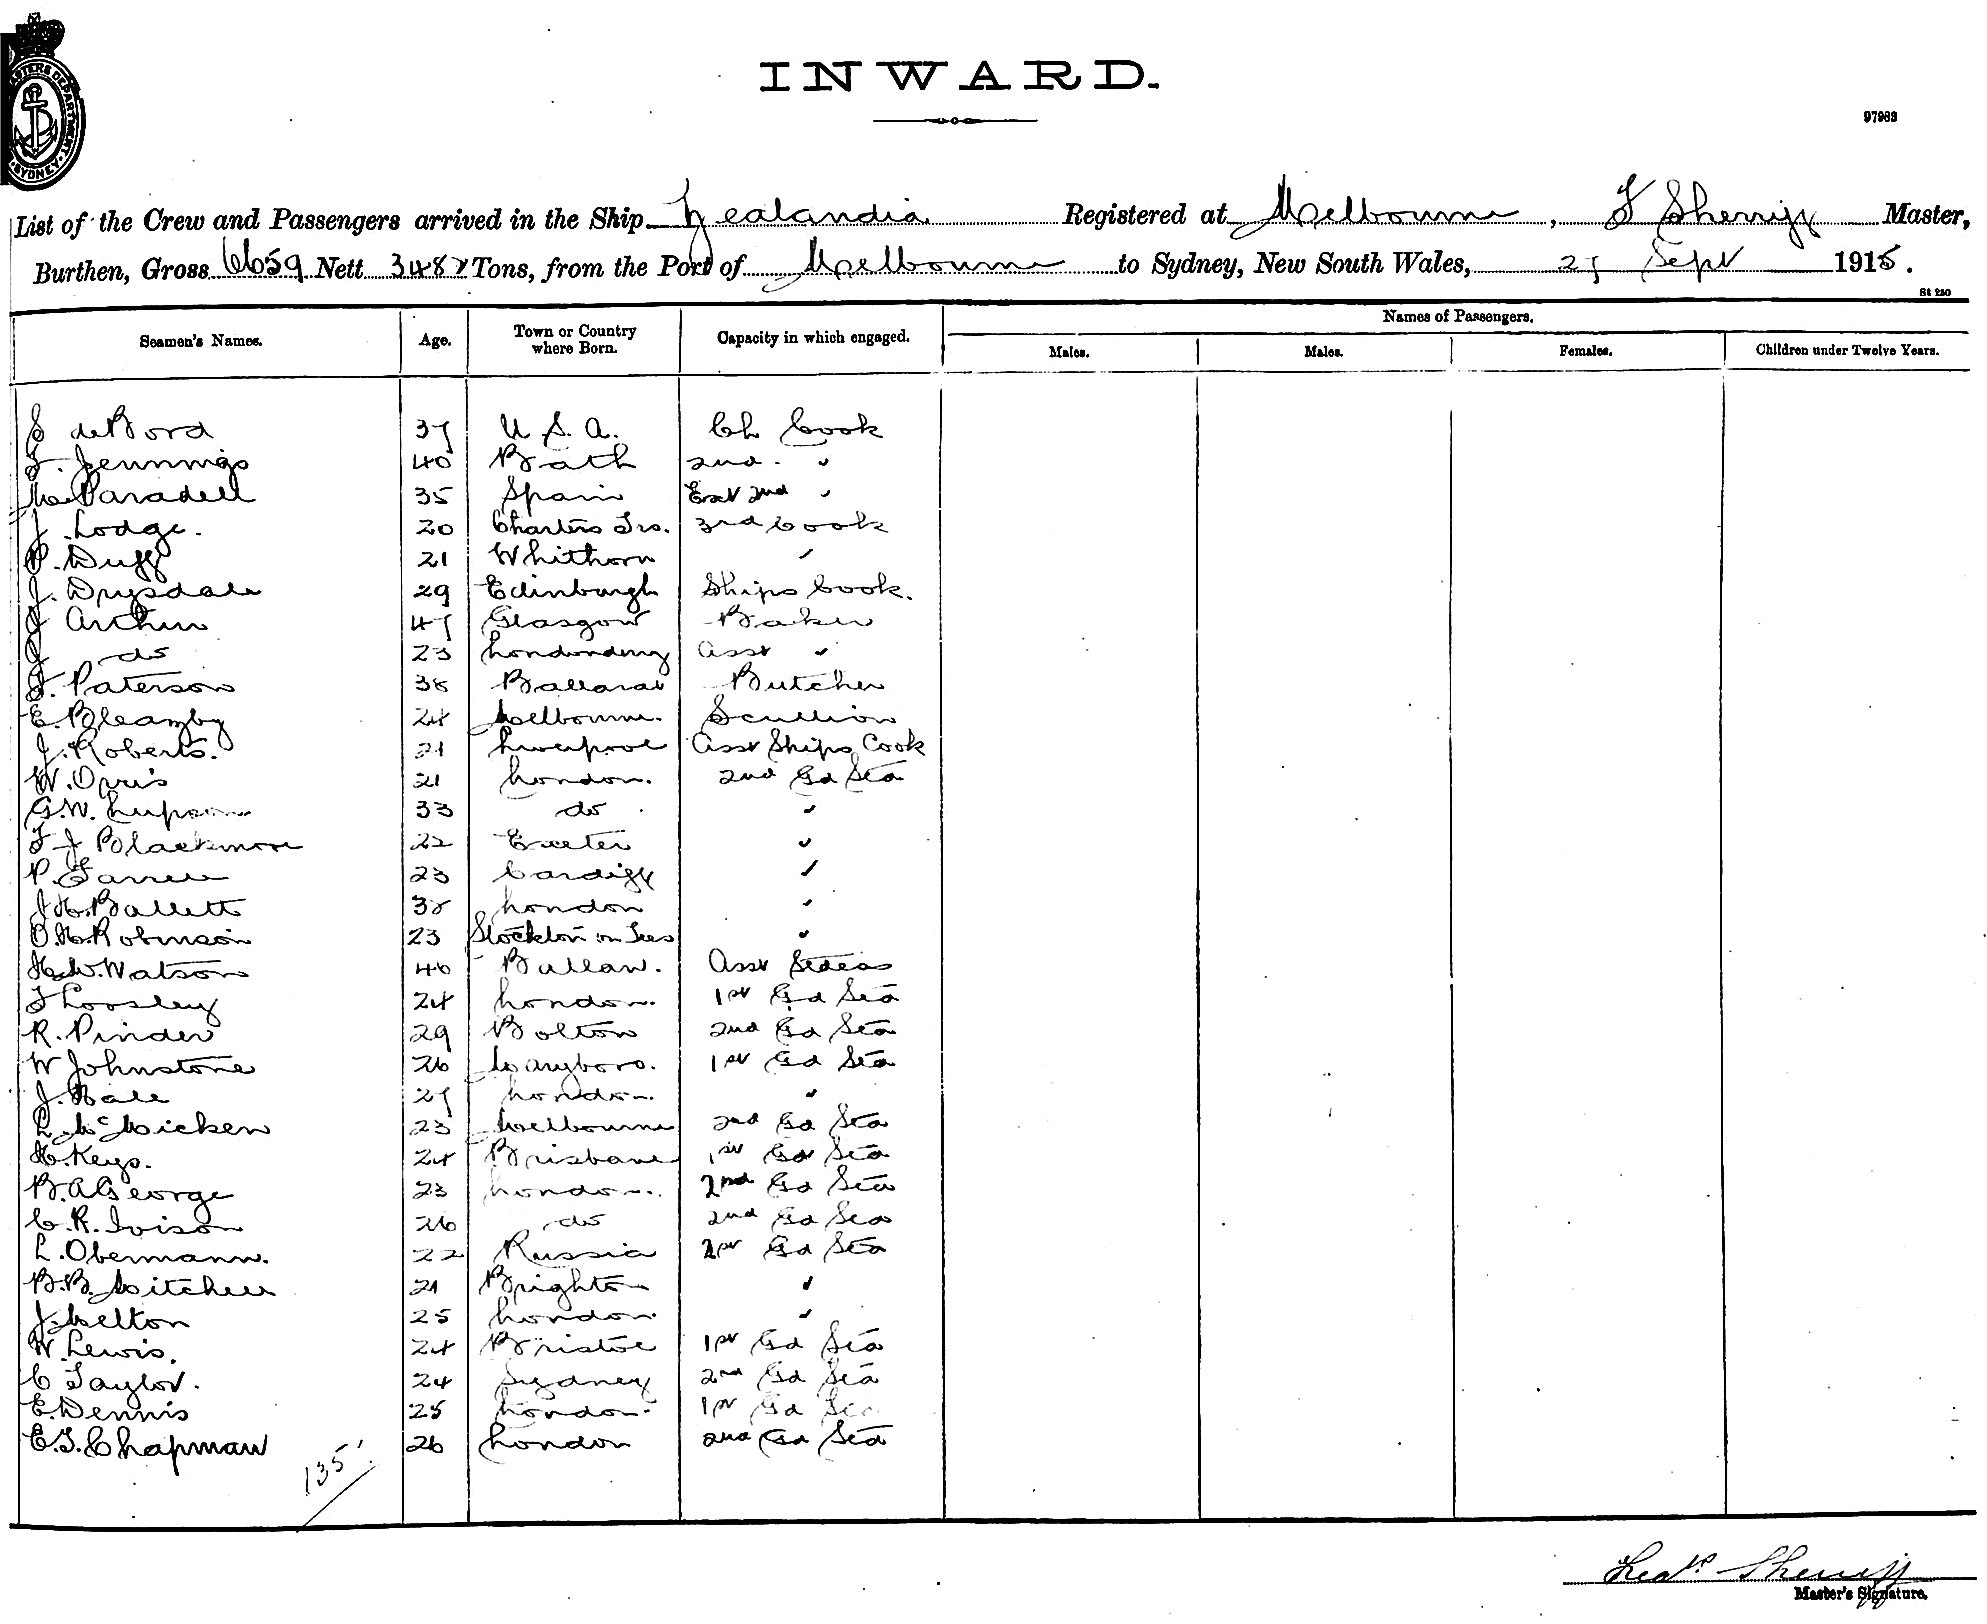 MASTERS DEPARTMENT. SYDNEY
INWARD.
97983
List of the Crew and Passengers arrived in the Ship Zealandia Registered at Melbourne, F Sherriff Master,
Burthen, Gross 6659 Nett 3482 Tons, from the Port of Melbourne to Sydney, New South Wales, 27 Sept 1915.
St 250
Seamen's Names. Age. Town or Country where Born. Capacity in which engaged. Names of Passengers.
Males. Males. Females. Children under Twelve Years.
S deBord 37 U.S.A. Ch Cook
F. Jennings 40 Bath 2nd "
M. Paradell 35 Spain Ext 2nd "
J. Lodge. 20 Charters Trs. 3rd Cook
P. Duff 21 Whithorn "
J. Drysdale 29 Edinburgh Ships Cook.
J Archer 47 Glasgow Baker
J do 23 Londonderry Asst "
F. Paterson 38 Ballarat Butcher
E. Bleazby 24 Melbourne. Scullion
J. Roberts. 21 Liverpool Asst Ships Cook
W. Opris 21 London. 2nd Gd Sta
G.W. Lupson 33 do "
F J Blackmore 22 Exeter "
P. Farrell 23 Cardiff "
J.H. Ballett 38 London "
O.H. Robinson 23 Stockton on Tees "
H.W. Watson 40 Bullan. Asst Stdeas
F Loosley 24 London. 1st Gd Sta
R. Pinder 29 Bolton 2nd Gd Sta
W Johnstone 26 Maryboro. 1st Gd Sta
J. Hale 27 London. "
L. McMicken 23 Melbourne 2nd Gd Sta
H. Keys. 24 Brisbane 1st Gd Sta
B. A George 23 London. 2nd Gd Sta
C. R. Ivison 26 do 2nd Gd Sta
L. Obermann. 22 Russia 2nd Gd Sta
B.B. Mitchell 21 Brighton "
J. Melton 25 London. "
W. Lewis. 24 Bristol 1st Gd Sta
C Taylor. 24 Sydney 2nd Gd Sta
E. Dennis 25 London. 1st Gd Sta
E.T. Chapman 26 London 2nd Gd Sta
135
Fredk Sherriff
Master's Signature.